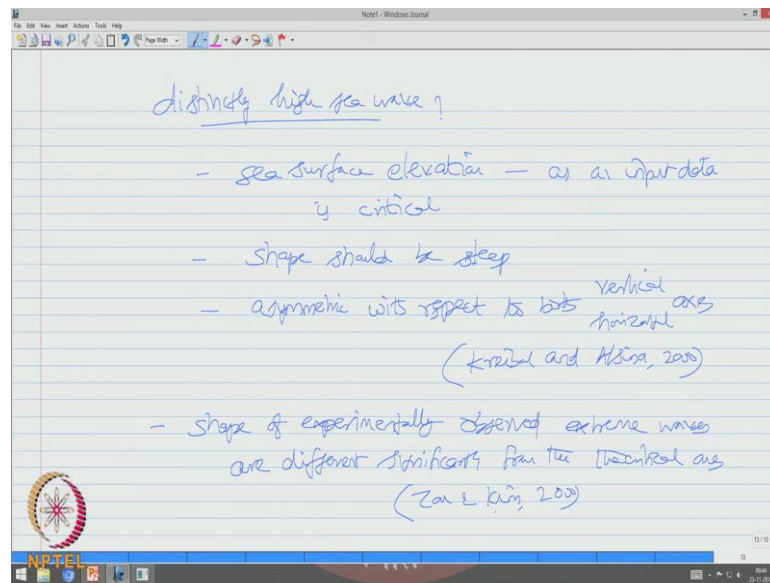 Note1 - Windows Journal
File Edit View Insert Actions Tools Help
Page Width
distinctly high sea wave?
- sea surface elevation - as an input data
is critical
- shape should be steep
- asymmetric with respect to both vertical axes
horizontal
(Kreibel and Alsina, 2000)
- shape of experimentally observed extreme waves
are different significantly from the theoretical ones
(Zou & Kim, 2000)
NPTEL
13/13
13